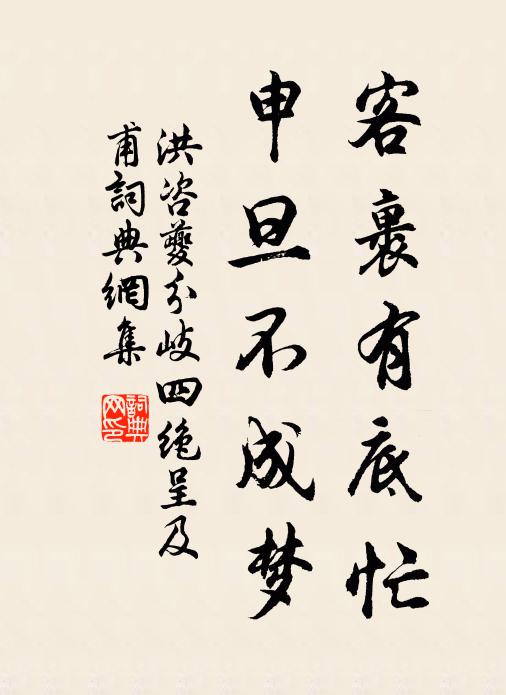 客裹有底忙
申旦不成梦
洪咨夔分岐四绝呈及
甫詞典網集
詞典
网印